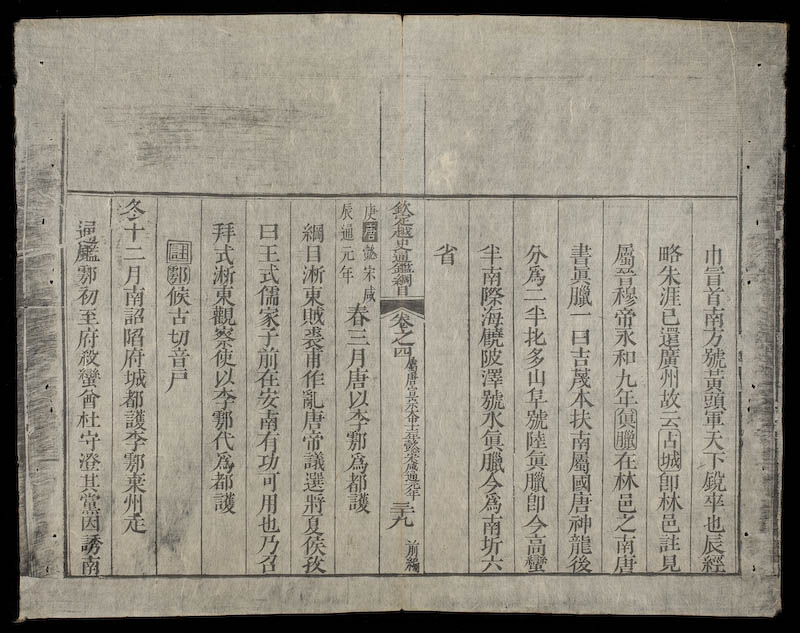 巾冒首南方號黃頭軍天下銳卒也辰經
略朱涯已還廣州故云占城卽林邑註見
屬晉穆帝永和九年眞臘在林邑之南唐
書眞臘一曰吉蔑本扶南屬國唐神龍後
分爲二半北多山阜號陸眞臘卽今高蠻
半南際海饒陂澤號水眞臘今爲南圻六
省
欽定越史通鑑綱目
卷之四
屬唐宣宗大中十二年懿宗咸通元年
三十九
前編
庚唐懿宗咸
辰通元年
春三月唐以李鄠爲都護
綱目淅東賊裘甫作亂唐帝議選將夏侯孜
曰王式儒家子前在安南有功可用也乃召
拜式淅東觀察使以李鄠代爲都護
註鄠候古切音戸
冬十二月南詔陷府城都護李鄠棄州走
通鑑鄠初至府殺蠻酋杜守澄其黨因誘南